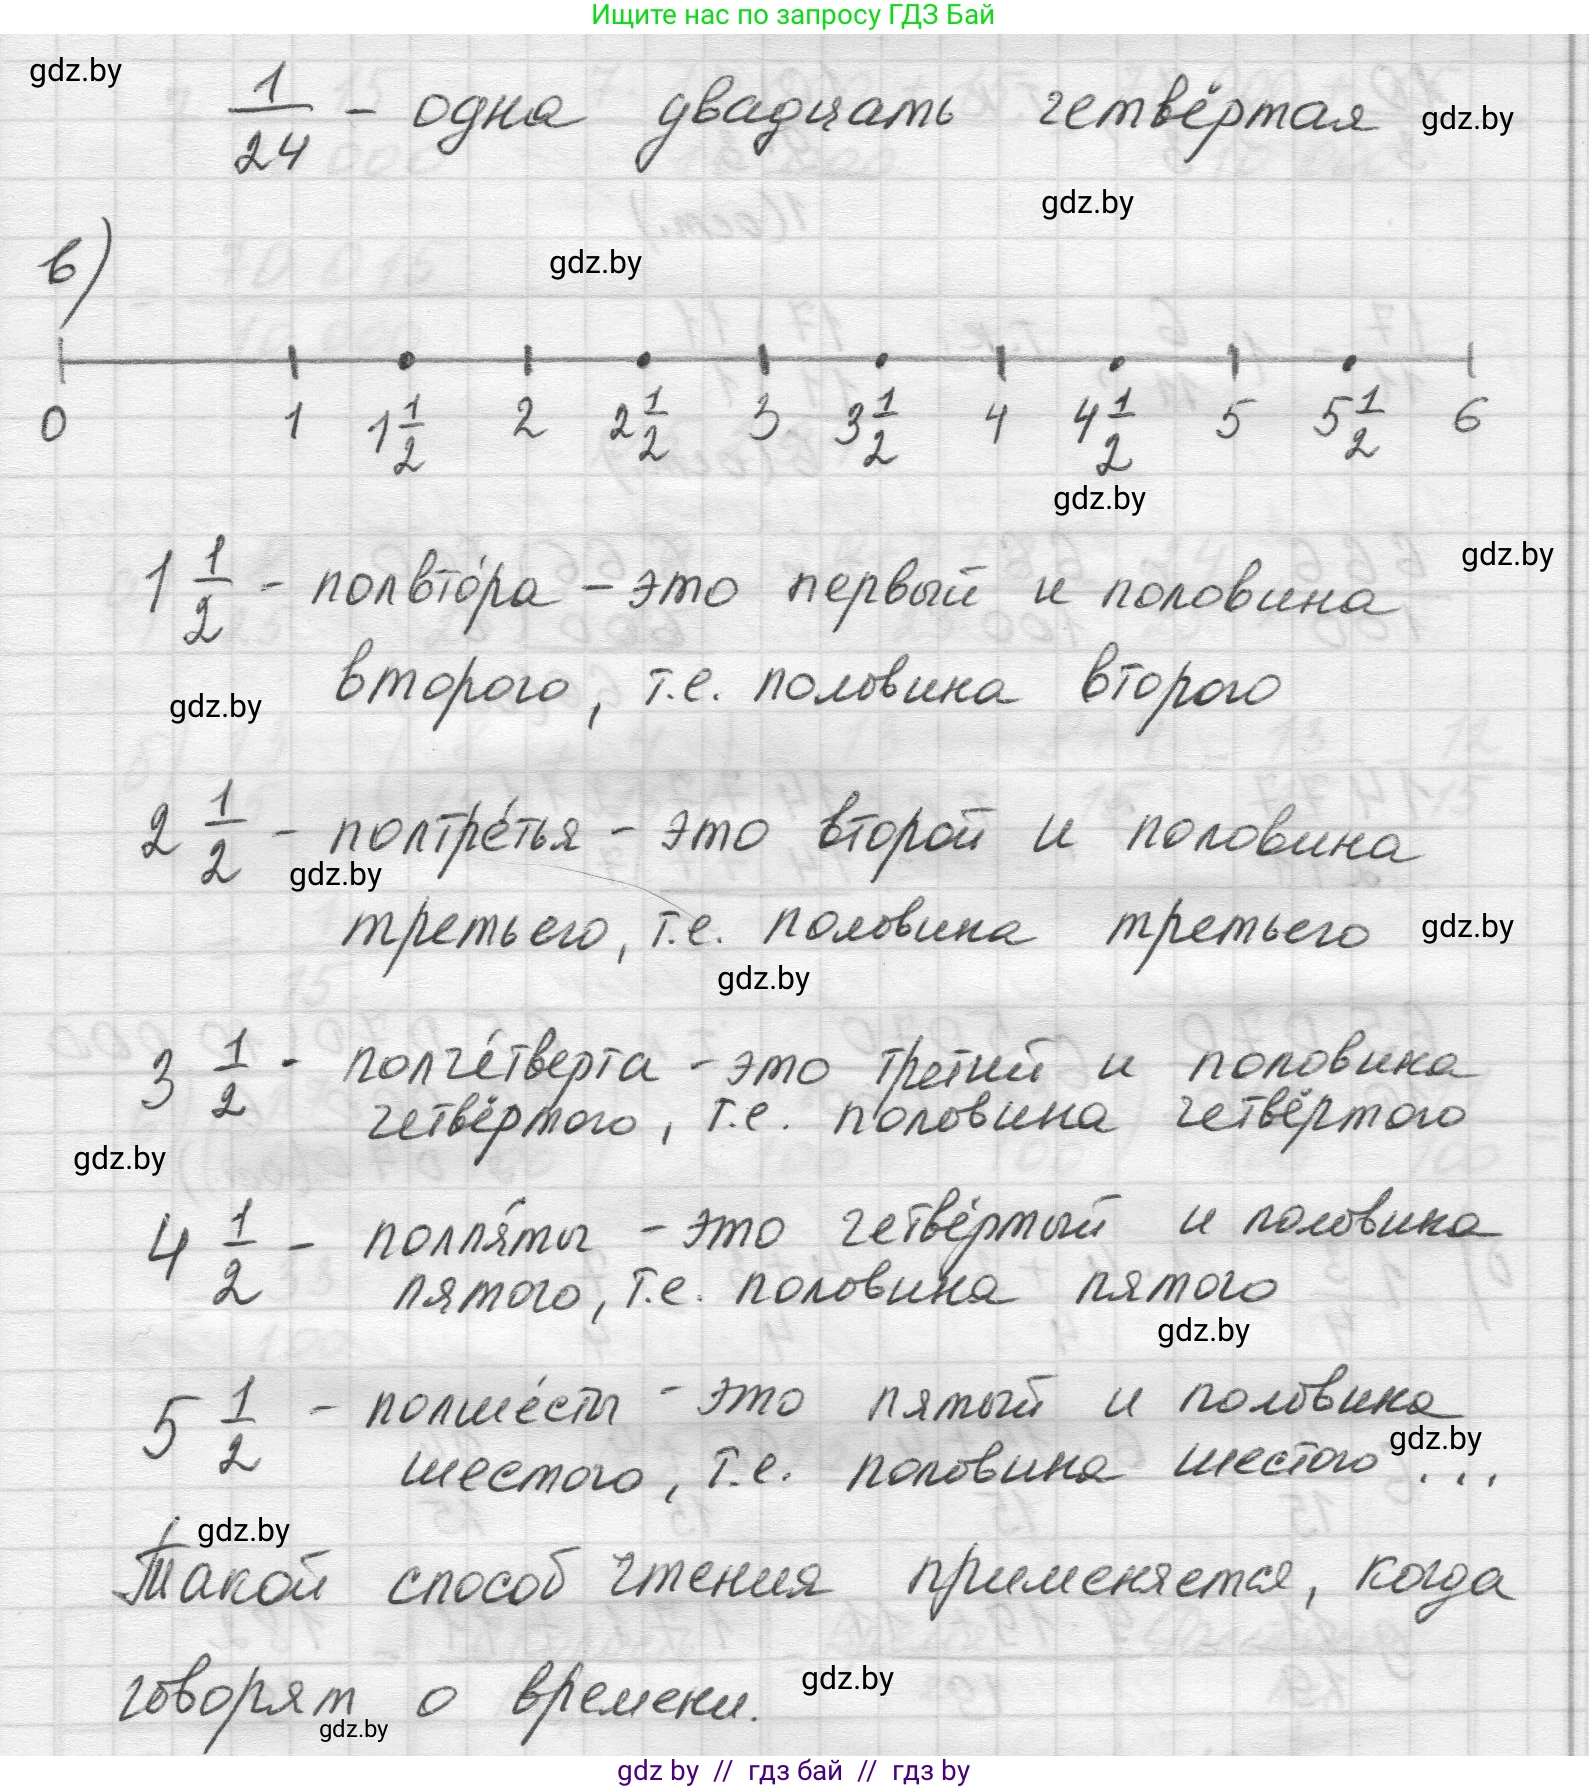 Ищите нас по запросу ГДЗ Бай
gdz.by
1/24 - одна двадцать четвёртая gdz.by
gdz.by
в) gdz.by
0 1 1 1/2 2 2 1/2 3 3 1/2 4 4 1/2 5 5 1/2 6
gdz.by
gdz.by
1 1/2 - полвто́ра - это первый и половина
второго, т.е. половина второго
gdz.by
2 1/2 - полтре́тья - это второй и половина
gdz.by
третьего, т.е. половина третьего gdz.by
gdz.by
3 1/2 - полче́тверта - это третий и половина
четвёртого, т.е. половина четвёртого
gdz.by
4 1/2 - полпя́ты - это четвёртый и половина
пятого, т.е. половина пятого
gdz.by
5 1/2 - полше́сты - это пятый и половина
gdz.by
шестого, т.е. половина шестого ...
gdz.by
Такой способ чтения применяется, когда
говорят о времени. gdz.by
gdz.by
gdz by // гдз бай // гдз by